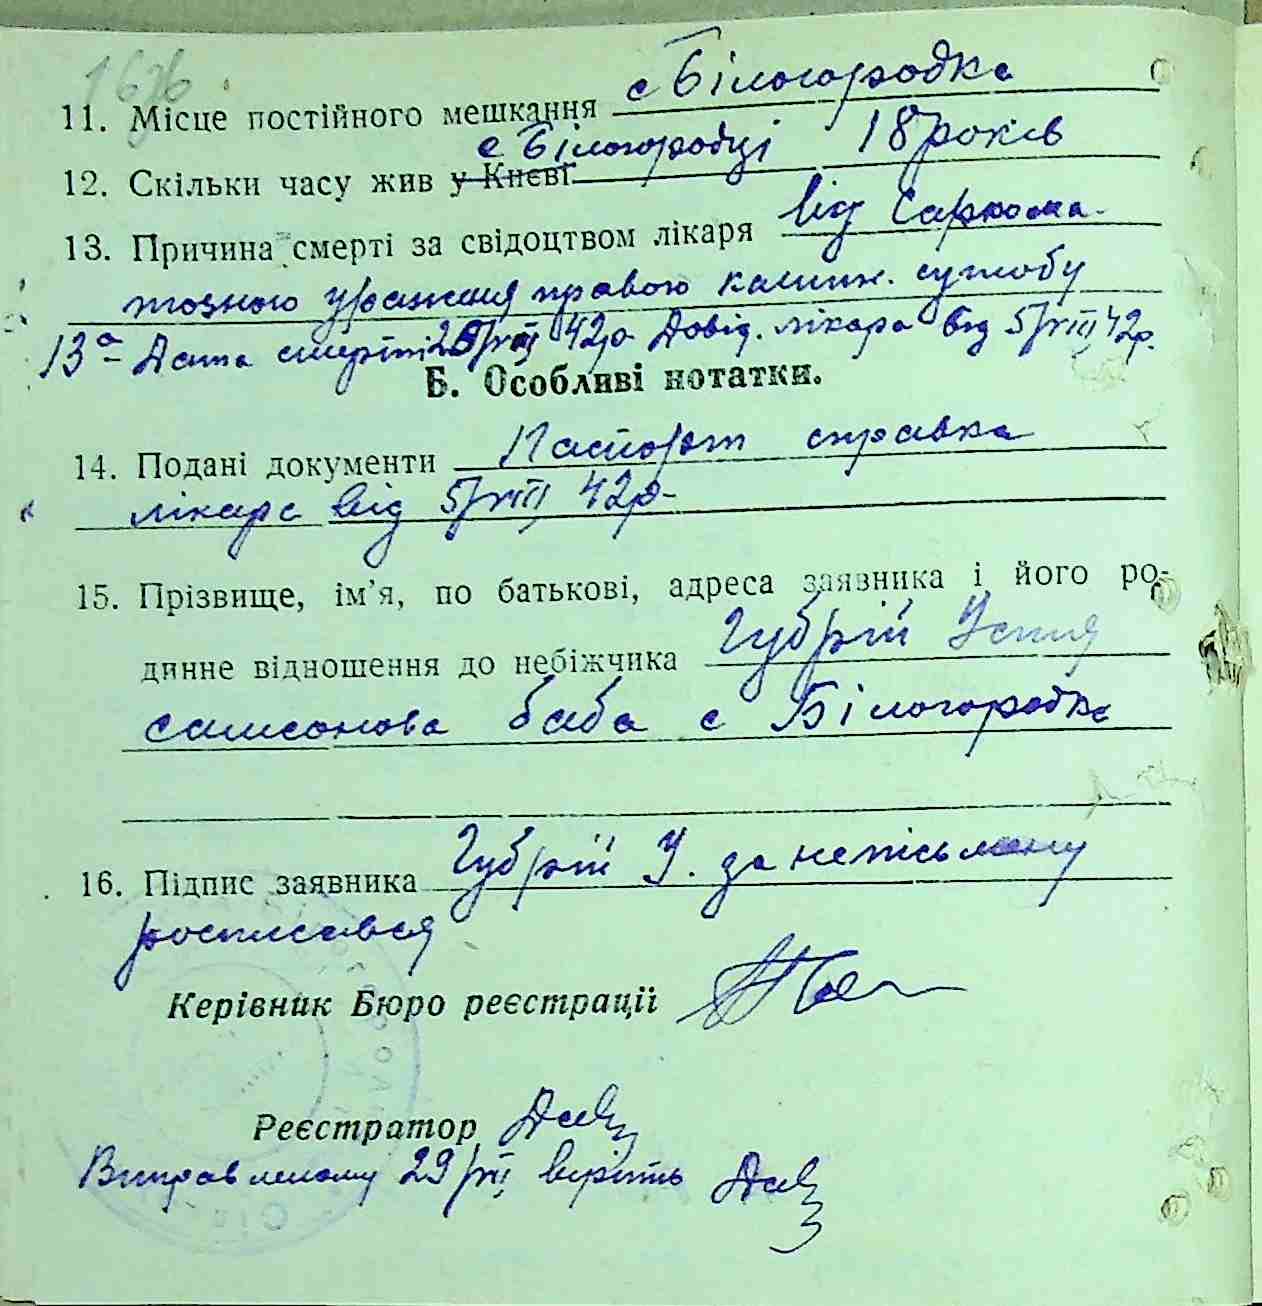 1676
11. Місце постійного мешкання с Білогородка
с Білогородці 18 років
12. Скільки часу жив у Києві
13. Причина смерті за свідоцтвом лікаря від Саркома-
тозного ураження правого колін. суглобу
13а- Дата смерті VII 42р Довід. лікара від 5/VIII 42р.
Б. Особливі нотатки.
14. Подані документи Паспорт справка
лікаря від 5/VIII 42р
15. Прізвище, ім'я, по батькові, адреса заявника і його ро-
динне відношення до небіжчика Губрій Устя
самсонова баба с Білогородка
16. Підпис заявника Губрій У. за непісьмену
росписався
Керівник Бюро реєстрації
Реєстратор
Виправленому 29/VII вірить